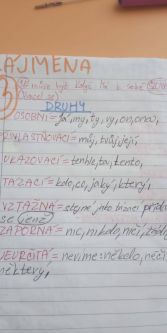 ZÁJMENA
DRUHY
OSOBNÍ = já, my, ty, vy, on, ona,
PŘIVLASTŇOVACÍ = můj, tvůj, její,
UKAZOVACÍ = tenhle, ta, tento,
TÁZACÍ = kdo, co, jaký, který,
VZTAŽNÁ = stejné jako tázací přid
se (jenž)
ZÁPORNÁ = nic, nikdo, ničí,
NEURČITÁ = nevíme: někdo, něčí
některý,